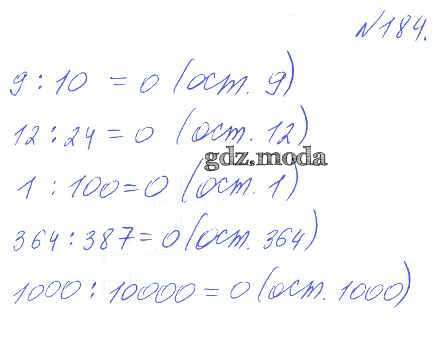 №184.
9 : 10 = 0 (ост. 9)
12 : 24 = 0 (ост. 12)
gdz.moda
1 : 100 = 0 (ост. 1)
364 : 387 = 0 (ост. 364)
1000 : 10000 = 0 (ост. 1000)